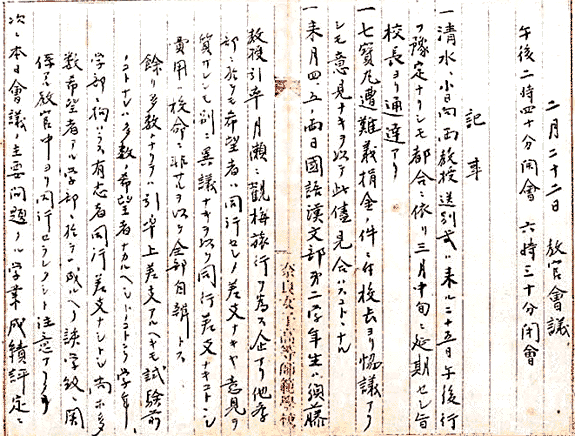 二月二十二日 教官會議
午後二時四十分開會 六時三十分閉會
記事
一清水、小島両教授送別式ハ来ル二十五日午後行
フ豫定ナリシモ都合ニ依リ三月中旬ニ延期セシ旨
校長ヨリ通達アリ
一七寶丸遭難義捐金ノ件ニ付校長ヨリ協議アリ
シモ意見ナキヲ以テ此儘見合ハスコトトナル
一来月四五ノ両日國語漢文部第二学年生ハ須藤
奈良女子高等師範學校
教授引率月瀬ニ觀梅旅行ヲ為ス企アリ他学
部ニ於テモ希望者ハ同行セシメ差支ナキヤ意見ヲ
質サレシモ別ニ異議ナキヲ以テ同行差支ナキコトトシ
費用ハ校命ニ非サルヲ以テ全部自辨トス
餘リ多数ナリテハ引率上差支アルヘキモ試験前
ノコトナレハ多数ノ希望者ナカルヘシトノコトニテ学年
学部ニ拘ハラス有志者同行差支ナシトシ尚ホ多
数希望者アル学部ニ於テハ成ルヘク該学級ニ関
係アル教官中ヨリ同行セラレタシト注意アリタリ
次ニ本日會議ノ主要問題タル学業成績評定ニ